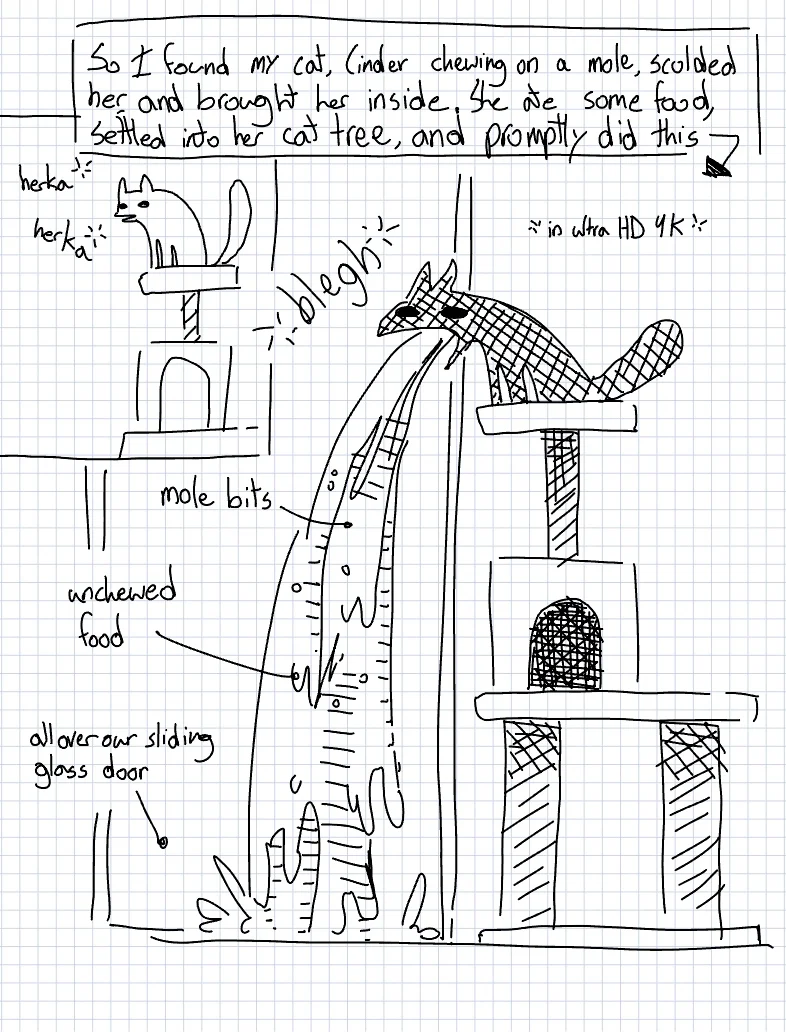 So I found my cat, Cinder chewing on a mole, scolded
her and brought her inside. She ate some food,
settled into her cat tree, and promptly did this
herka
herka
blegh
in ultra HD 4K
mole bits
unchewed
food
all over our sliding
glass door